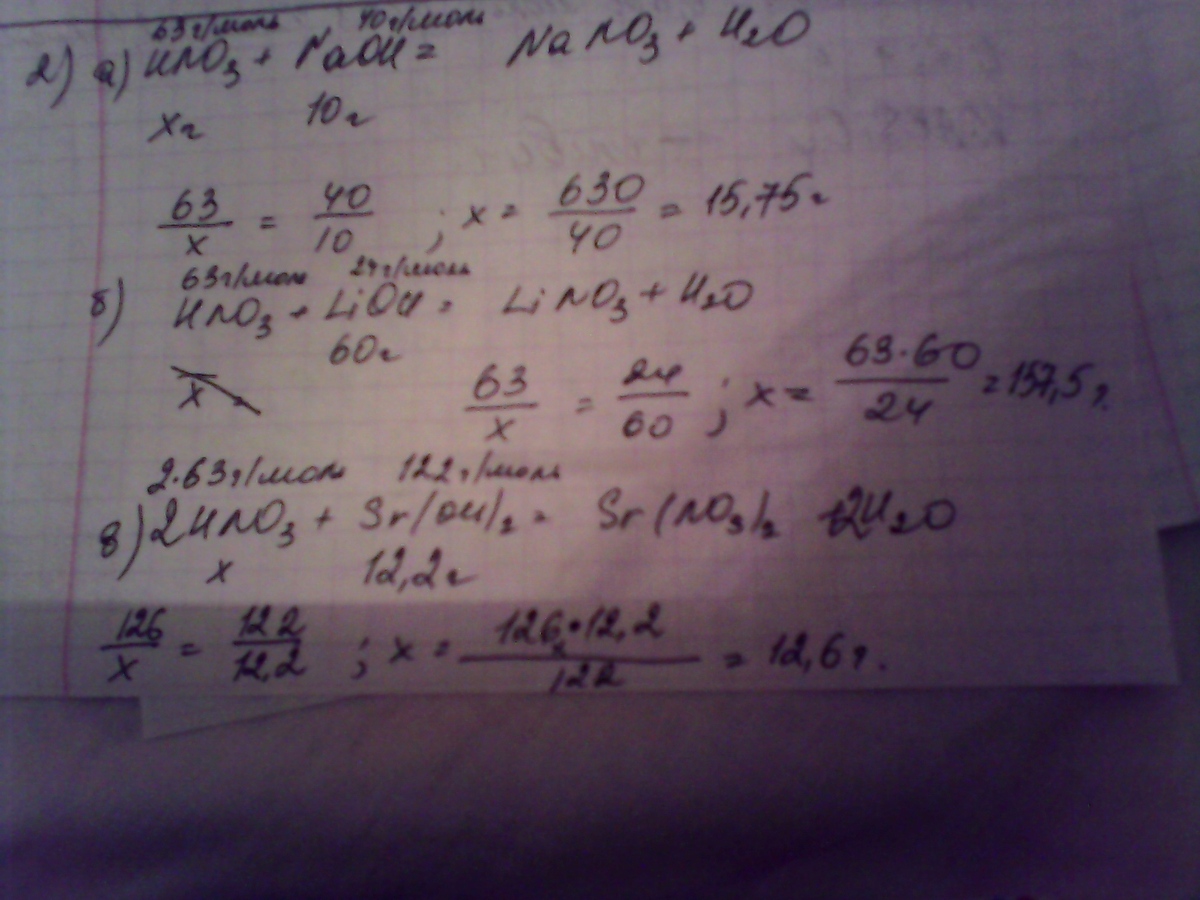 63 г/моль 40 г/моль
2) а) HNO3 + NaOH = NaNO3 + H2O
xг 10г
63/x = 40/10 ; x = 630/40 = 15,75г
63г/моль 24г/моль
б) HNO3 + LiOH = LiNO3 + H2O
60г
63/x = 24/60 ; x = 63·60/24 = 157,5г.
2·63г/моль 122г/моль
в) 2HNO3 + Sr(OH)2 = Sr(NO3)2 + 2H2O
x 12,2г
126/x = 122/12,2 ; x = 126·12,2/122 = 12,6г.